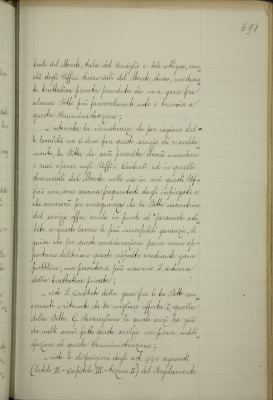 691
trali del Monte, Sala del Consiglio e sale attigue, non
chè degli Uffici succursali del Monte stesso, median
te trattativa privata preceduta da una gara fra
alcune Ditte più favorevolmente note e benevise a
questa Amministrazione;
- ritenuta la circostanza che per ragione del
la località ove si deve fare questo servizio di riscalda
mento, la Ditta che sarà prescelta dovrà mandare
i suoi operai negli Uffici Centrali ed in quelli
succursali del Monte nelle ore in cui questi Uf
fici non sono ancora frequentati dagli impiegati e
che occorrerà per conseguenza che la Ditta assuntrice
del servizio offra anche in fatto al personale ad
detto a questo lavoro le più ineccepibili garanzie, di
guisa che per queste considerazioni pare meno op
portuno deliberare questo appalto mediante gara
pubblica, ma presentarsi più acconcio il sistema
della trattativa privata;
- visto il risultato della gara fra le tre Ditte con
correnti, e ritenuto che la migliore offerta è quella
della Ditta C. la quale anzi ha già
da molti anni fatto questo servizio con piena soddi
sfazione di questa Amministrazione;
- viste le disposizioni degli art. 99 e seguenti
(titolo II - Capitolo III - Sezione II) del Regolamento